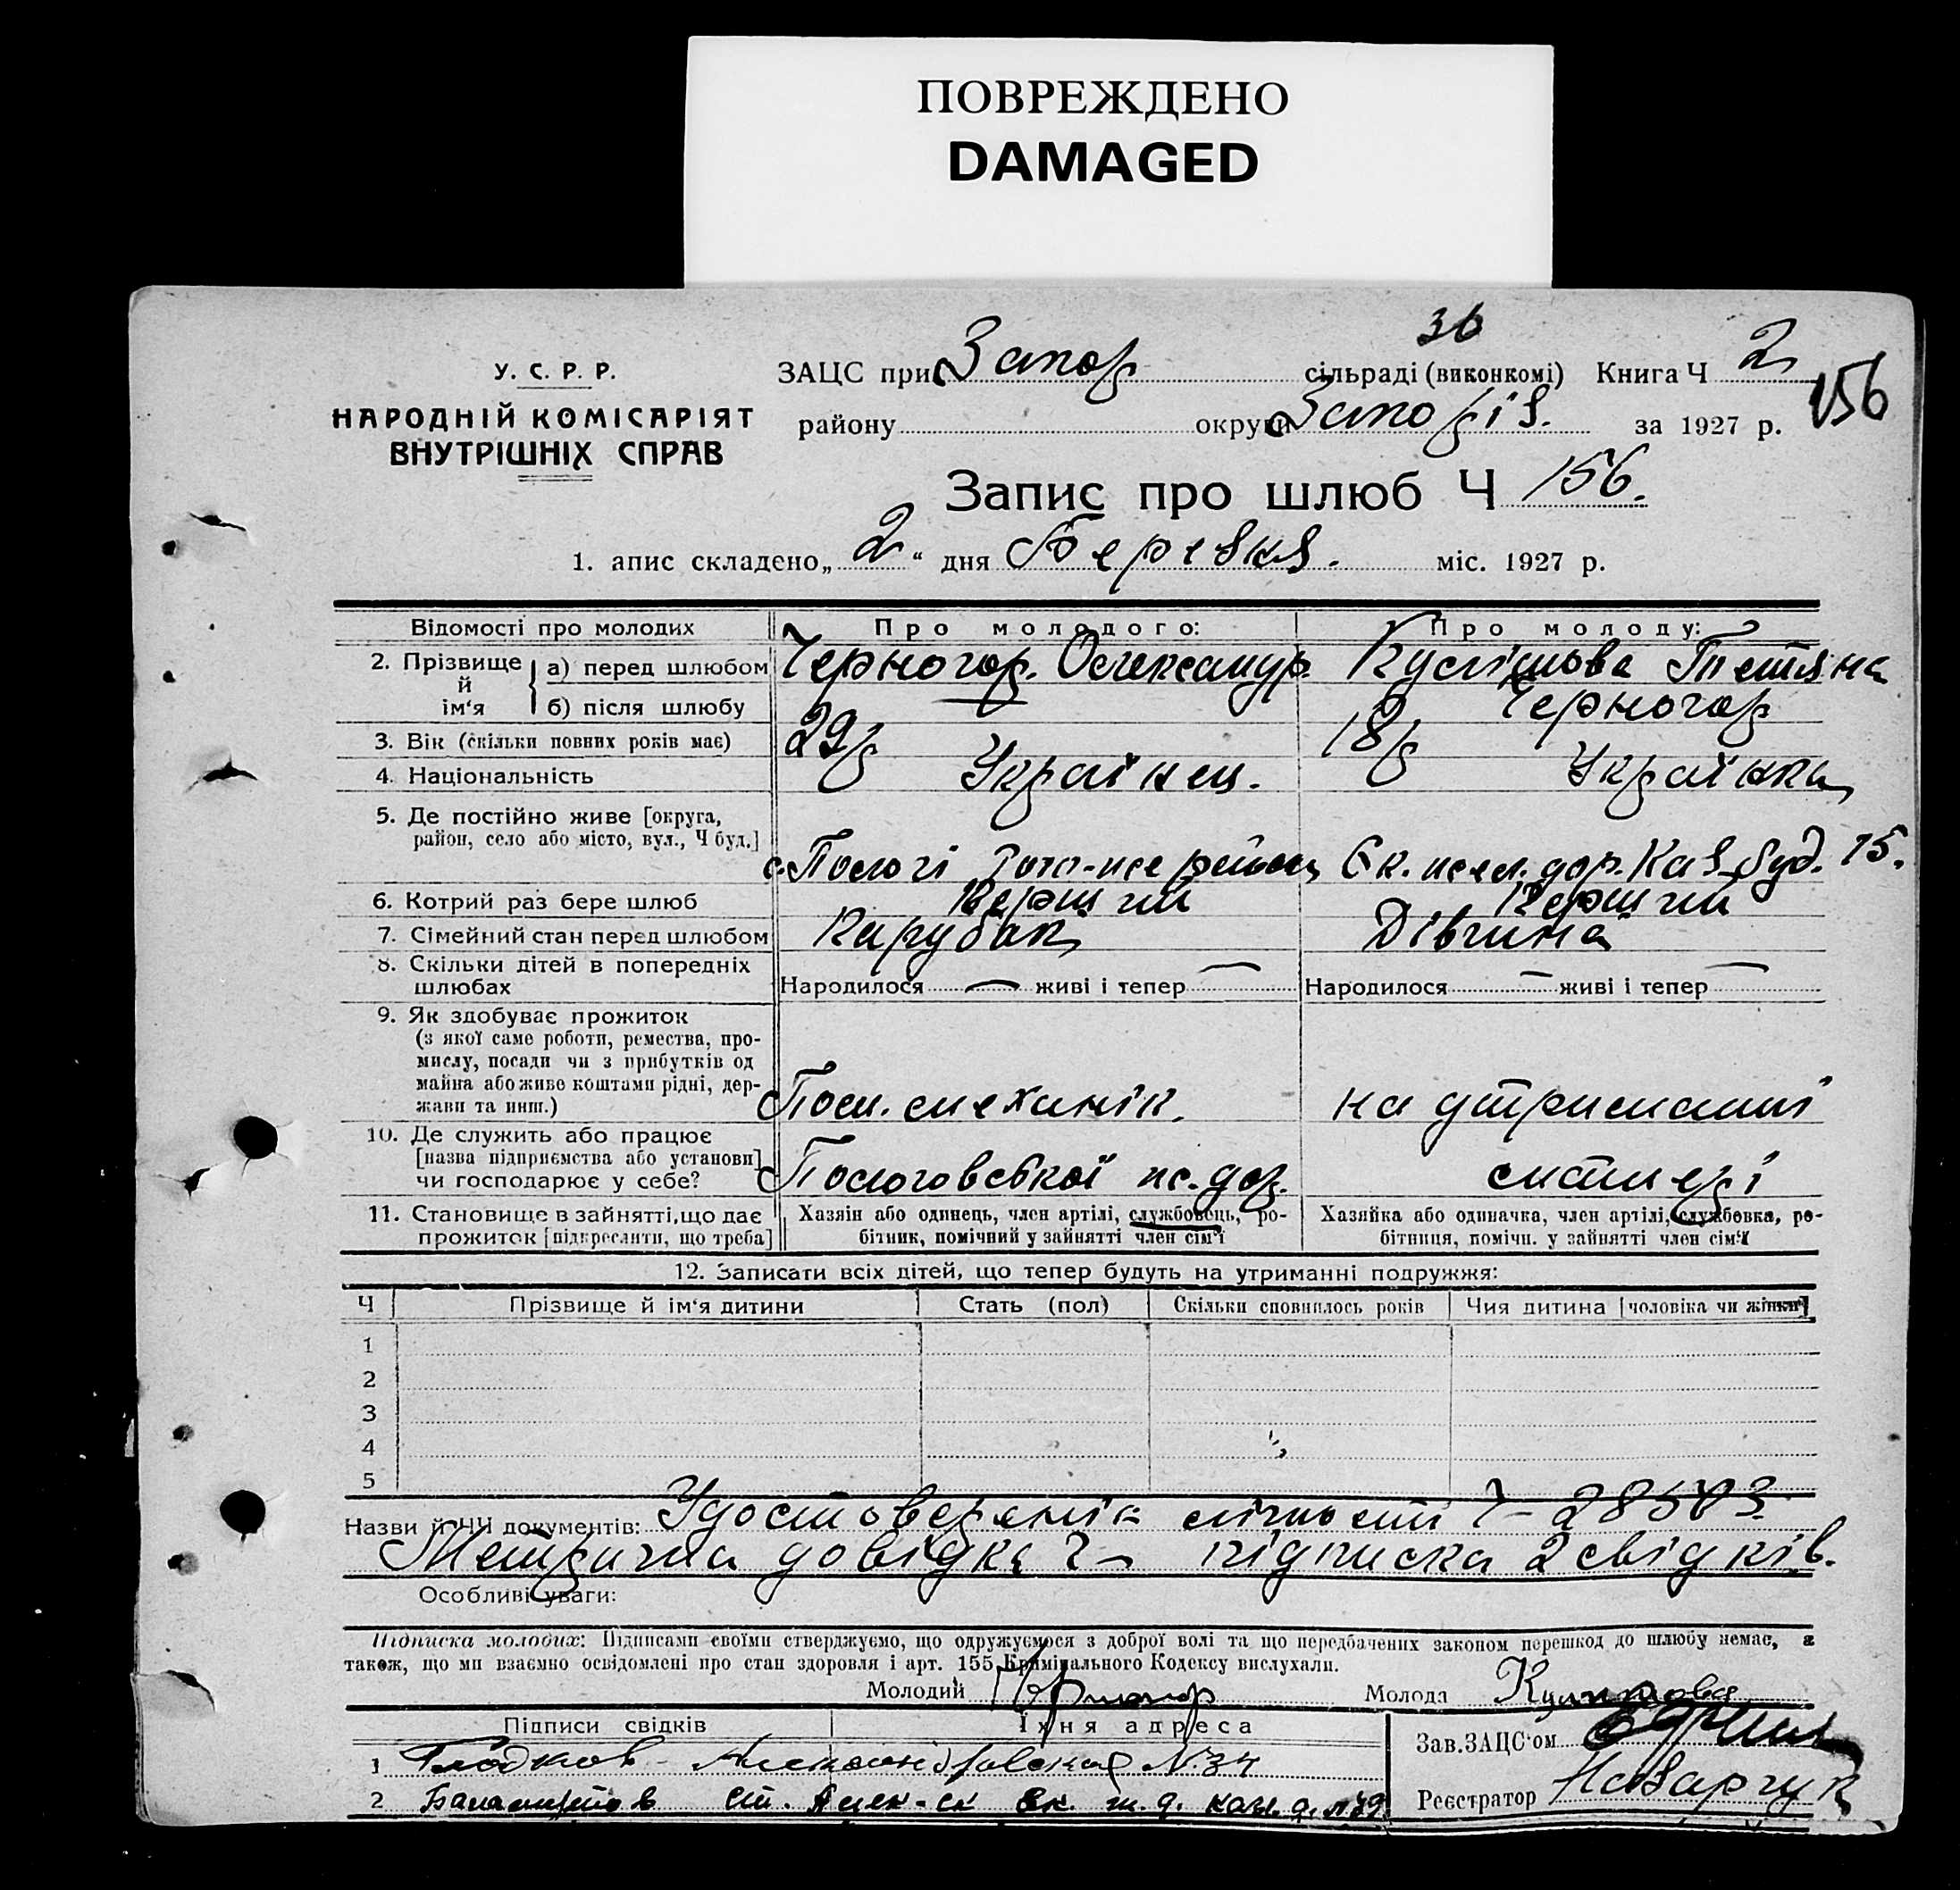 ПОВРЕЖДЕНО
DAMAGED
У. С. Р. Р.
НАРОДНІЙ КОМІСАРІЯТ
ВНУТРІШНІХ СПРАВ
36
ЗАЦС при Запор сільраді (виконкомі) Книга Ч 2
156
району округи Запоріз. за 1927 р.
Запис про шлюб Ч 156.
1. апис складено „2“ дня Березня. міс. 1927 р.
Відомості про молодих Про молодого: Про молоду:
2. Прізвище й ім‘я
а) перед шлюбом Черногор. Олександр Кулішова Тетяна
б) після шлюбу Черногор
3. Вік (скільки повних років має) 29 р 18 р
4. Національність Українец. Українка
5. Де постійно живе [округа,
район, село або місто, вул., Ч буд.]
с. Пологі району Єк. дор. Каз. буд. 15.
6. Котрий раз бере шлюб Перший Перший
7. Сімейний стан перед шлюбом Парубок Дівчина
8. Скільки дітей в попередніх
шлюбах
Народилося — живі і тепер — Народилося — живі і тепер —
9. Як здобуває прожиток
(з якої саме роботи, ремества, про-
мислу, посади чи з прибутків од
майна або живе коштами рідні, дер-
жави та инш.)
Пом. механік. на утриманні
10. Де служить або працює
[назва підприємства або установи]
чи господарює у себе?
Пологовської дор. матері
11. Становище в зайнятті, що дає
прожиток [підкреслити, що треба]
Хазяїн або одинець, член артілі, службовець, ро-
бітник, помічний у зайнятті член сім‘ї
Хазяйка або одиначка, член артілі, службовка, ро-
бітниця, помічн. у зайнятті член сім‘ї
12. Записати всіх дітей, що тепер будуть на утриманні подружжя:
Ч Прізвище й ім‘я дитини Стать (пол) Скільки сповнилось років Чия дитина [чоловіка чи жінки]
1
2
3
4
5
Назви й ЧЧ документів: Удостоверенія лічності Ч-28503.
Метрична довідка Ч— підписка 2 свідків.
Особливі уваги:
Підписка молодих: Підписами своїми стверджуємо, що одружуємося з доброї волі та що передбачених законом перешкод до шлюбу немає, а
також, що ми взаємно освідомлені про стан здоровля і арт. 155 Кримінального Кодексу вислухали.
Молодий Молода Кулишова
Підписи свідків Їхня адреса
Зав. ЗАЦС‘ом
1 Гладков Александровская N. 34
2 ст. Алек-ск Ек. ж. д. каз. д. №39
Реєстратор Назарчук